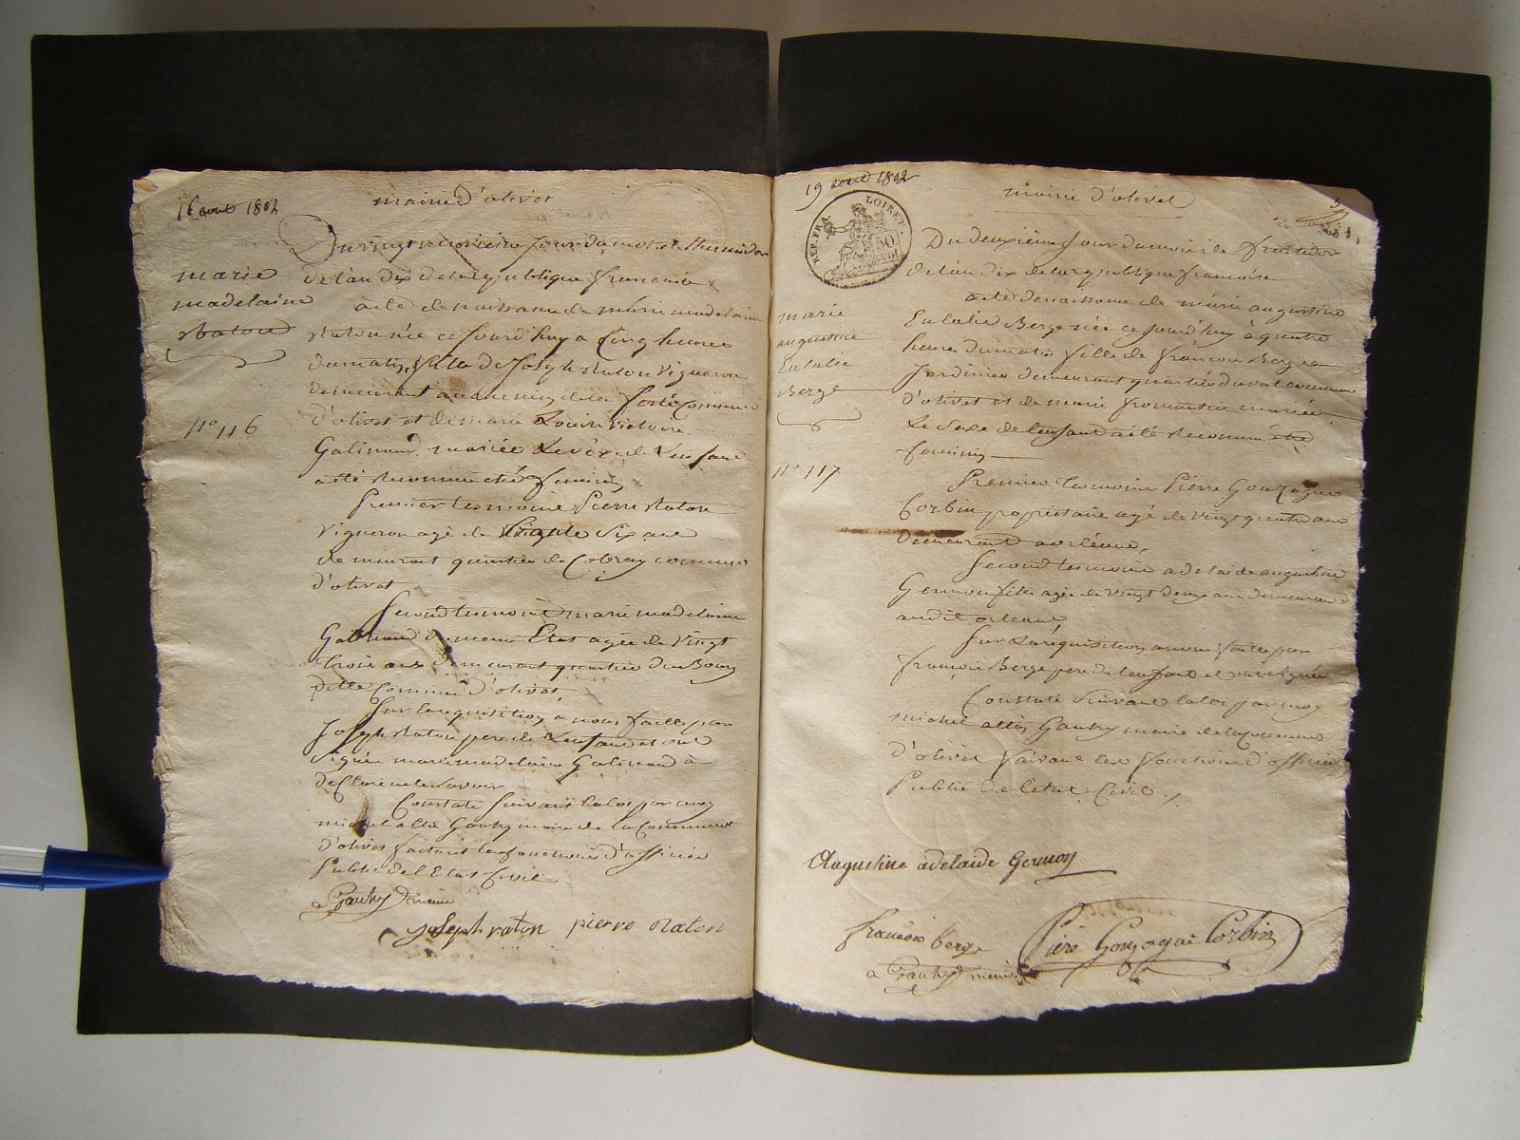 16 aout 1802
mairie d'olivet
Du vingt neuvieme jour du mois de thermidor
de l'an dix de la republique francaise
marie
madelaine
raton
acte de naissance de marie madelaine
raton née ce jourd'huy a cinq heures
du matin fille de Joseph raton vigneron
demeurant
d'olivet et de marie Louise victoire
n° 116
Galinand mariée le sexe de l'enfant
a été reconnu être feminin
Premier temoine Pierre raton
vigneron agé de trante six ans
demeurant quartier de Cobray commune
d'olivet
second temoine marie madelaine
Galinand agée de vingt
trois ans demeurant quartier du Bourg
ditte Commune d'olivet
Sur la requisition a nous faitte par
Joseph raton pere de l'enfant et ont
signé marie madelaine Galinand a
declaré ne le savoir
Constaté suivant la loi par moy
michel alté Gautry maire de la Commune
d'olivet faisant les fonctions d'officier
Public de l'Etat Civil
Gautry maire
joseph raton pierre raton
19 aout 1802
mairie d'olivet
REP. FRA. LOIRET
50
Du deuxième jour du mois de fructidor
de l'an dix de la republique francaise
marie
augustine
Eulalie
Berge
acte de naissance de marie augustine
Eulalie Berge née ce jourd'huy à quatre
heures du matin fille de françois Berge
Jardinier demeurant quartier du val commune
d'olivet et de marie fromentin mariée
Le sexe de l'enfant a été reconnu être
feminin
n° 117
Premier temoine Pierre Gonzague
Corbin propriétaire agé de vingt quatre ans
demeurant a orléans
second temoine adelaide augustine
Germon fille agée de vingt deux ans demeurant
audit orleans
Sur la réquisition a nous faitte par
françois Berge pere de l'enfant et ont signé
Constaté suivant la loi par moy
michel alté Gautry maire de la Commune
d'olivet faisant les fonctions d'officier
Public de l'etat Civil
Augustine adelaide Germon
françois berge
Piere Gonzague Corbin
Gautry maire